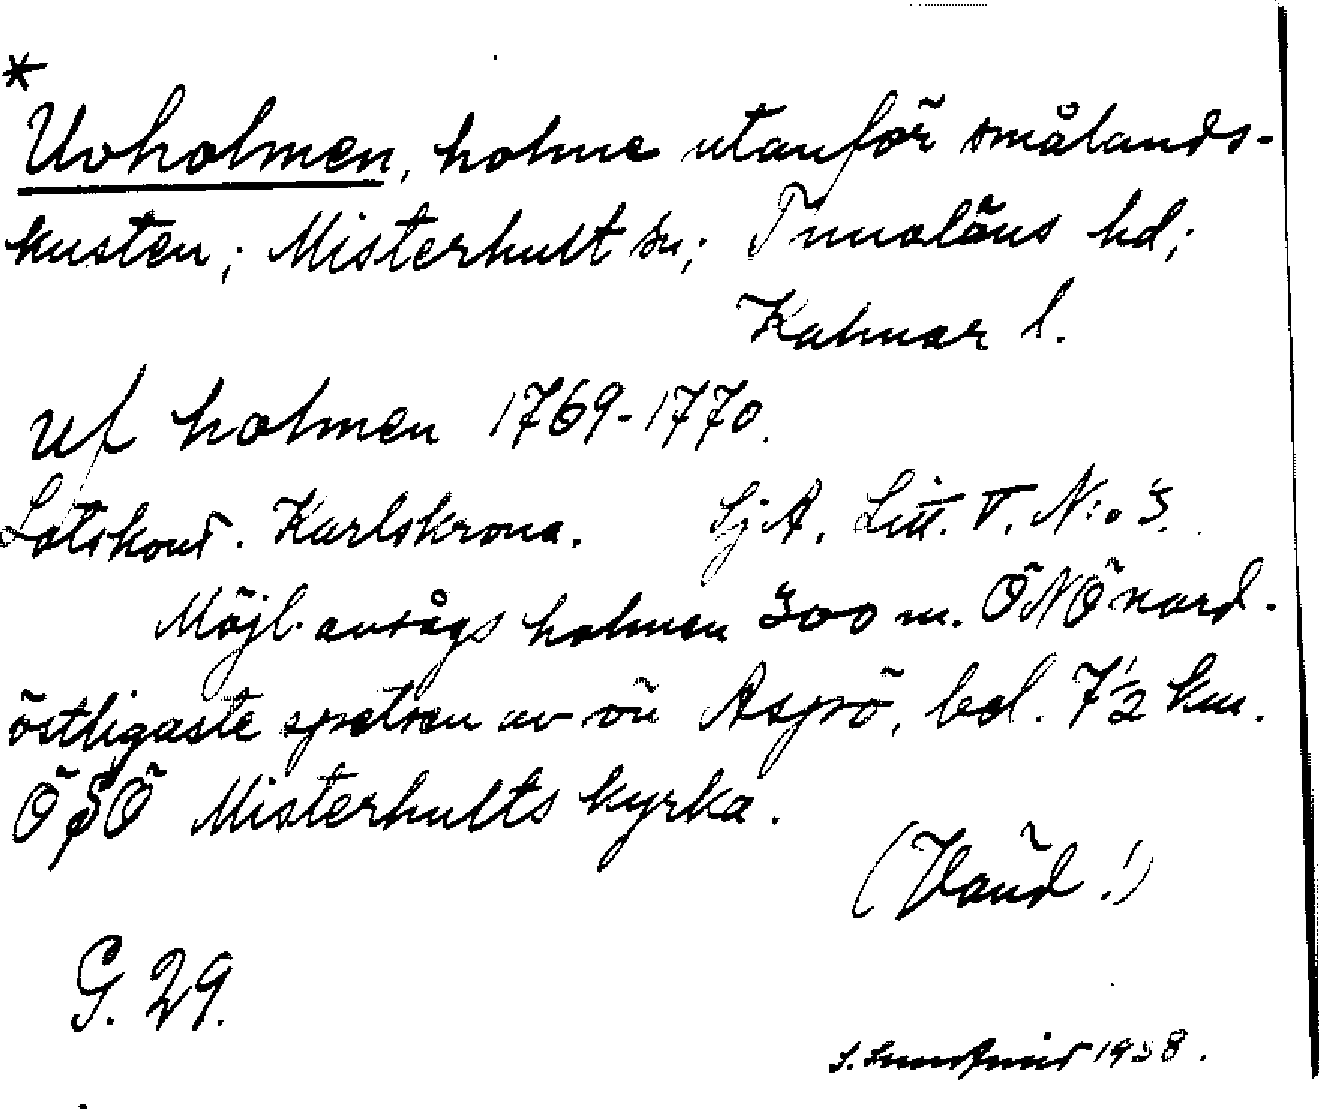 *
Uvholmen, holme utanför smålands-
kusten; Misterhult sn; Tunaläns hd;
Kalmar l.
uf holmen 1769-1770.
Lotskont. Karlskrona. SjA. Litt. V. N:o 3.
Möjl. avsågs holmen 300 m. ÖNÖ nord-
östligaste spetsen av ön Aspö, bel. 7 1/2 km.
ÖSÖ Misterhults kyrka.
(Vänd!)
G. 29.
1938.